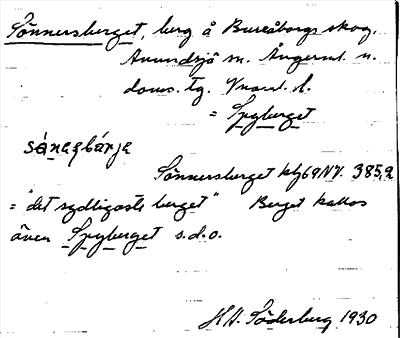 Sönnersberget, berg å Bureåborgs skog,
Anundsjö sn. Ångerml. n.
doms. tg. Vnorrl. l.
= Spyberget
Sönnersberget kbl 69 NV. 385,2
= "det sydligaste berget" Berget kallas
även Spyberget s.d.o.
H. Söderberg 1930